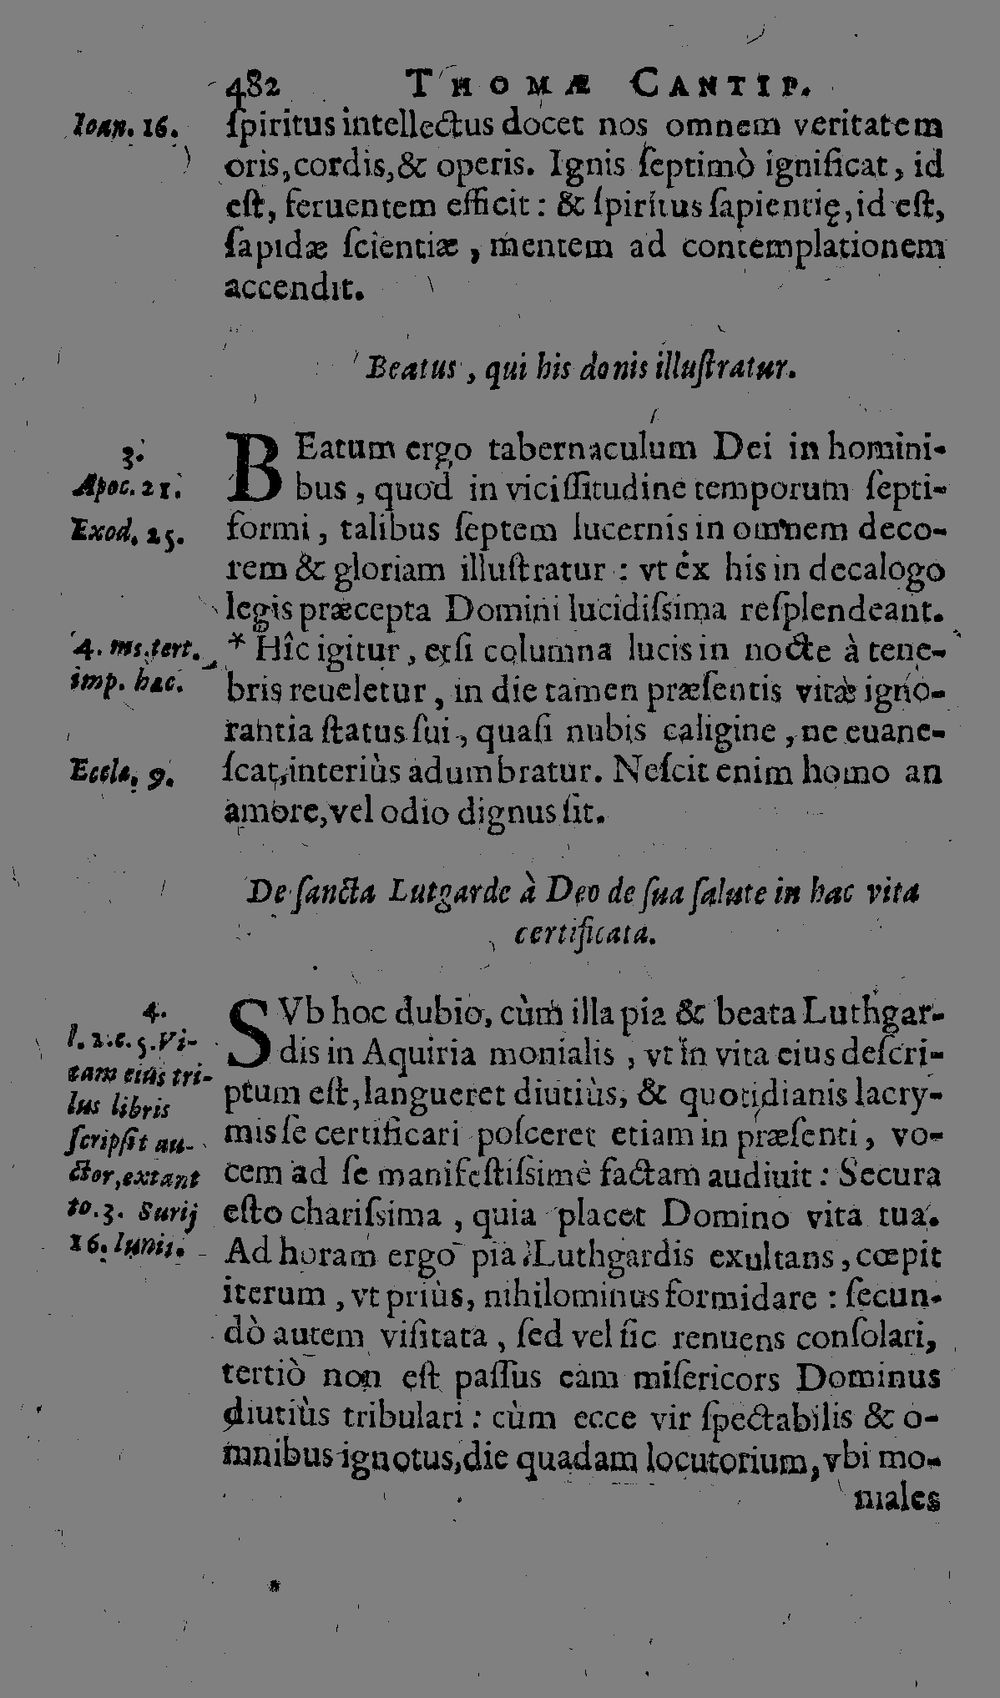 482 THOMÆ CANTIP.
Ioan. 16.
ſpiritus intellectus docet nos omnem veritatem
oris, cordis, & operis. Ignis ſeptimò ignificat, id
eſt, feruentem efficit: & ſpiritus ſapientię, id eſt,
ſapidæ ſcientiæ, mentem ad contemplationem
accendit.
Beatus, qui his donis illuſtratur.
3.
Apoc. 21.
Exod. 25.
BEatum ergo tabernaculum Dei in homini-
bus, quod in viciſſitudine temporum ſepti-
formi, talibus ſeptem lucernis in omnem deco-
rem & gloriam illuſtratur: vt ex his in decalogo
legis præcepta Domini lucidiſſima reſplendeant.
4. ms. tert.
imp. hac.
* Hîc igitur, etſi columna lucis in nocte à tene-
bris reueletur, in die tamen præſentis vitæ igno-
rantia ſtatus ſui, quaſi nubis caligine, ne euane-
Eccle. 9.
ſcat, interiùs adumbratur. Neſcit enim homo an
amore, vel odio dignus ſit.
De ſancta Lutgarde à Deo de ſua ſalute in hac vita
certificata.
4.
l. 2. c. 5. Vi-
tam eius tri-
lus libris
ſcripſit au-
ctor, extant
to. 3. Surij
16. Iunij.
SVb hoc dubio, cùm illa pia & beata Luthgar-
dis in Aquiria monialis, vt in vita eius deſcri-
ptum eſt, langueret diutiùs, & quotidianis lacry-
mis ſe certificari poſceret etiam in præſenti, vo-
cem ad ſe manifeſtiſſimè factam audiuit: Secura
eſto chariſſima, quia placet Domino vita tua.
Ad horam ergo pia Luthgardis exultans, cœpit
iterum, vt priùs, nihilominus formidare: ſecun-
dò autem viſitata, ſed vel ſic renuens conſolari,
tertiò non eſt paſſus eam miſericors Dominus
diutiùs tribulari: cùm ecce vir ſpectabilis & o-
mnibus ignotus, die quadam locutorium, vbi mo-
niales